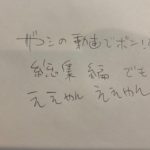 ザコシの動画でボン!!
総集編でも
ええやん ええやん